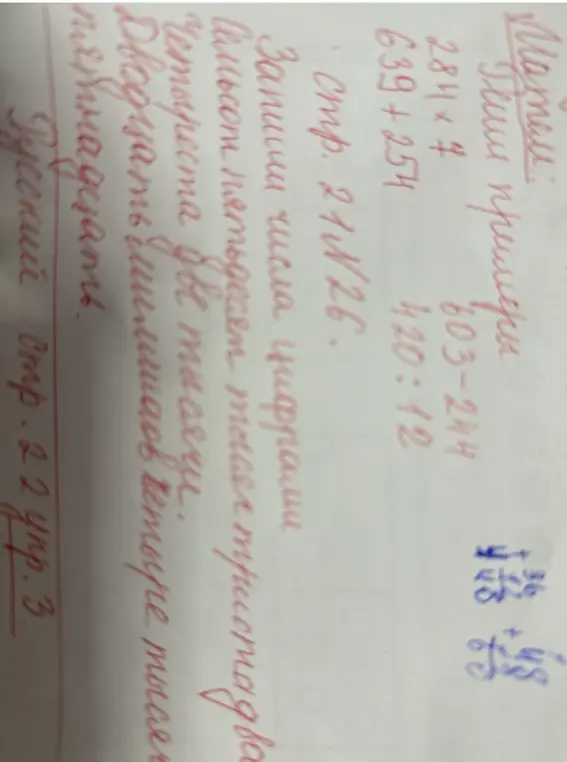 Матем.
Реши примеры
284 × 7 603 - 244
639 + 254 420 : 12
стр. 21 N 26.
Запиши числа цифрами
Семьсот пятьдесят тысяч триста два
четыреста две тысячи.
Двадцать миллионов четыре тысяч
пятнадцать.
Русский стр. 22 упр. 3